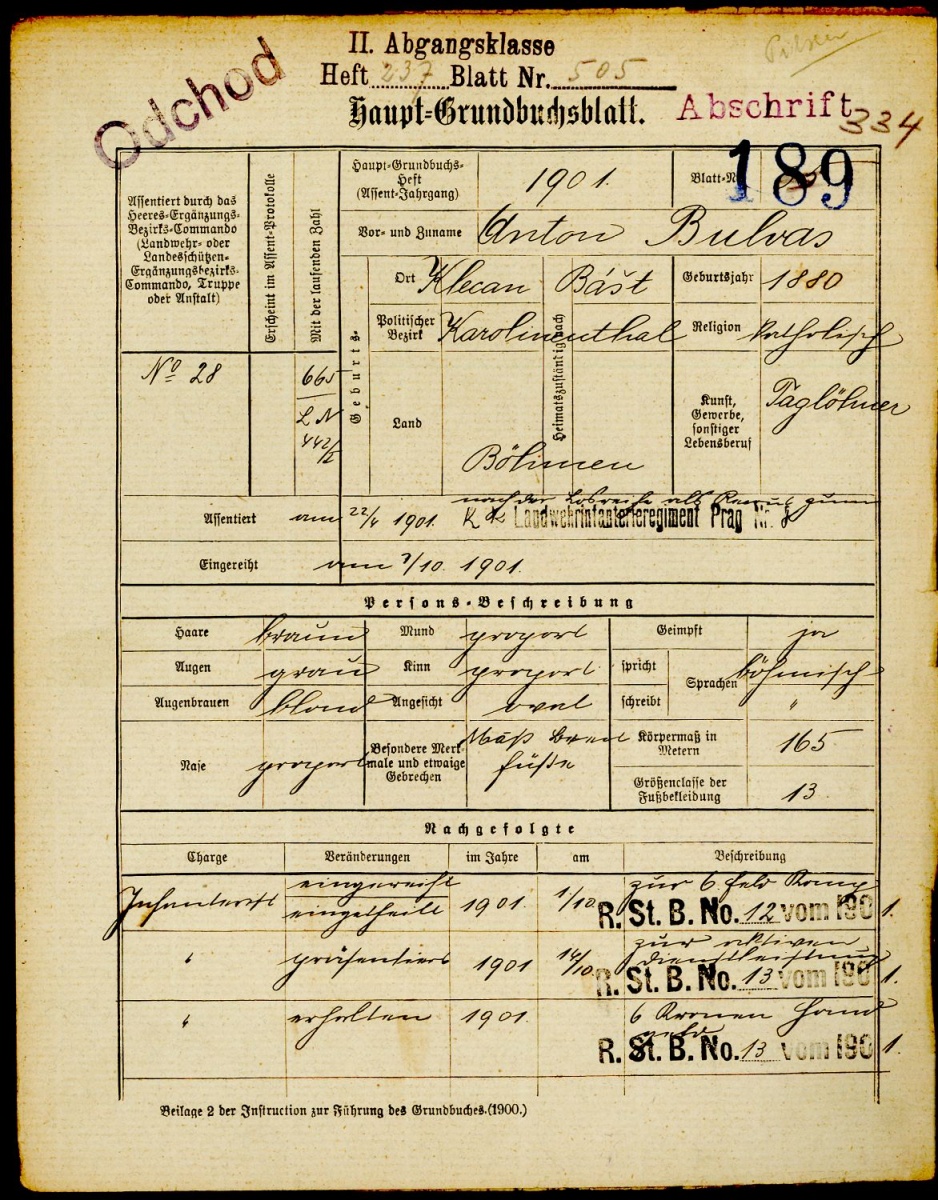 II. Abgangsklasse
Odchod
Heft 237 Blatt Nr. 505
Haupt=Grundbuchsblatt.
Abschrift
334
Assentiert durch das Heeres-Ergänzungs-Bezirks-Commando (Landwehr- oder Landesschützen-Ergänzungsbezirks-Commando, Truppe oder Anstalt)
Erscheint im Assent-Protokolle
Mit der laufenden Zahl
Haupt-Grundbuchs-Heft (Assent-Jahrgang) 1901.
Blatt-Nr. 189
Vor- und Zuname Anton Bulvas
Geburts-
Ort Klecan
Heimatszuständig nach
Bášt
Geburtsjahr 1880
Politischer Bezirk Karolinenthal
Religion katholisch
No 28
665
L N
442/2
Land Böhmen
Kunst, Gewerbe, sonstiger Lebensberuf Taglöhner
Assentiert am 22/4 1901. nach der Losreihe als Recrut zum
K k Landwehrinfanterieregiment Prag Nr. 8
Eingereiht am 1/10. 1901.
Persons-Beschreibung
Haare braun
Mund proport
Geimpft ja
Augen grau
Kinn proport
spricht
Sprachen
böhmisch
Augenbrauen blond
Angesicht oval
schreibt "
Nase proport
Besondere Merkmale und etwaige Gebrechen
füße
Körpermaß in Metern 165
Größenclasse der Fußbekleidung 13
Nachgefolgte
Charge Veränderungen im Jahre am Beschreibung
Infanterist eingereiht
eingetheilt 1901 1/10. zur 6 Feld Komp
R. St. B. No. 12 vom 190 1.
" präsentiert 1901 14/10. zur aktiven
Dienstleistung
R. St. B. No. 13 vom 190 1.
" erhalten 1901. 6 Kronen Hand
geld
R. St. B. No. 13 vom 190 1.
Beilage 2 der Instruction zur Führung des Grundbuches.(1900.)